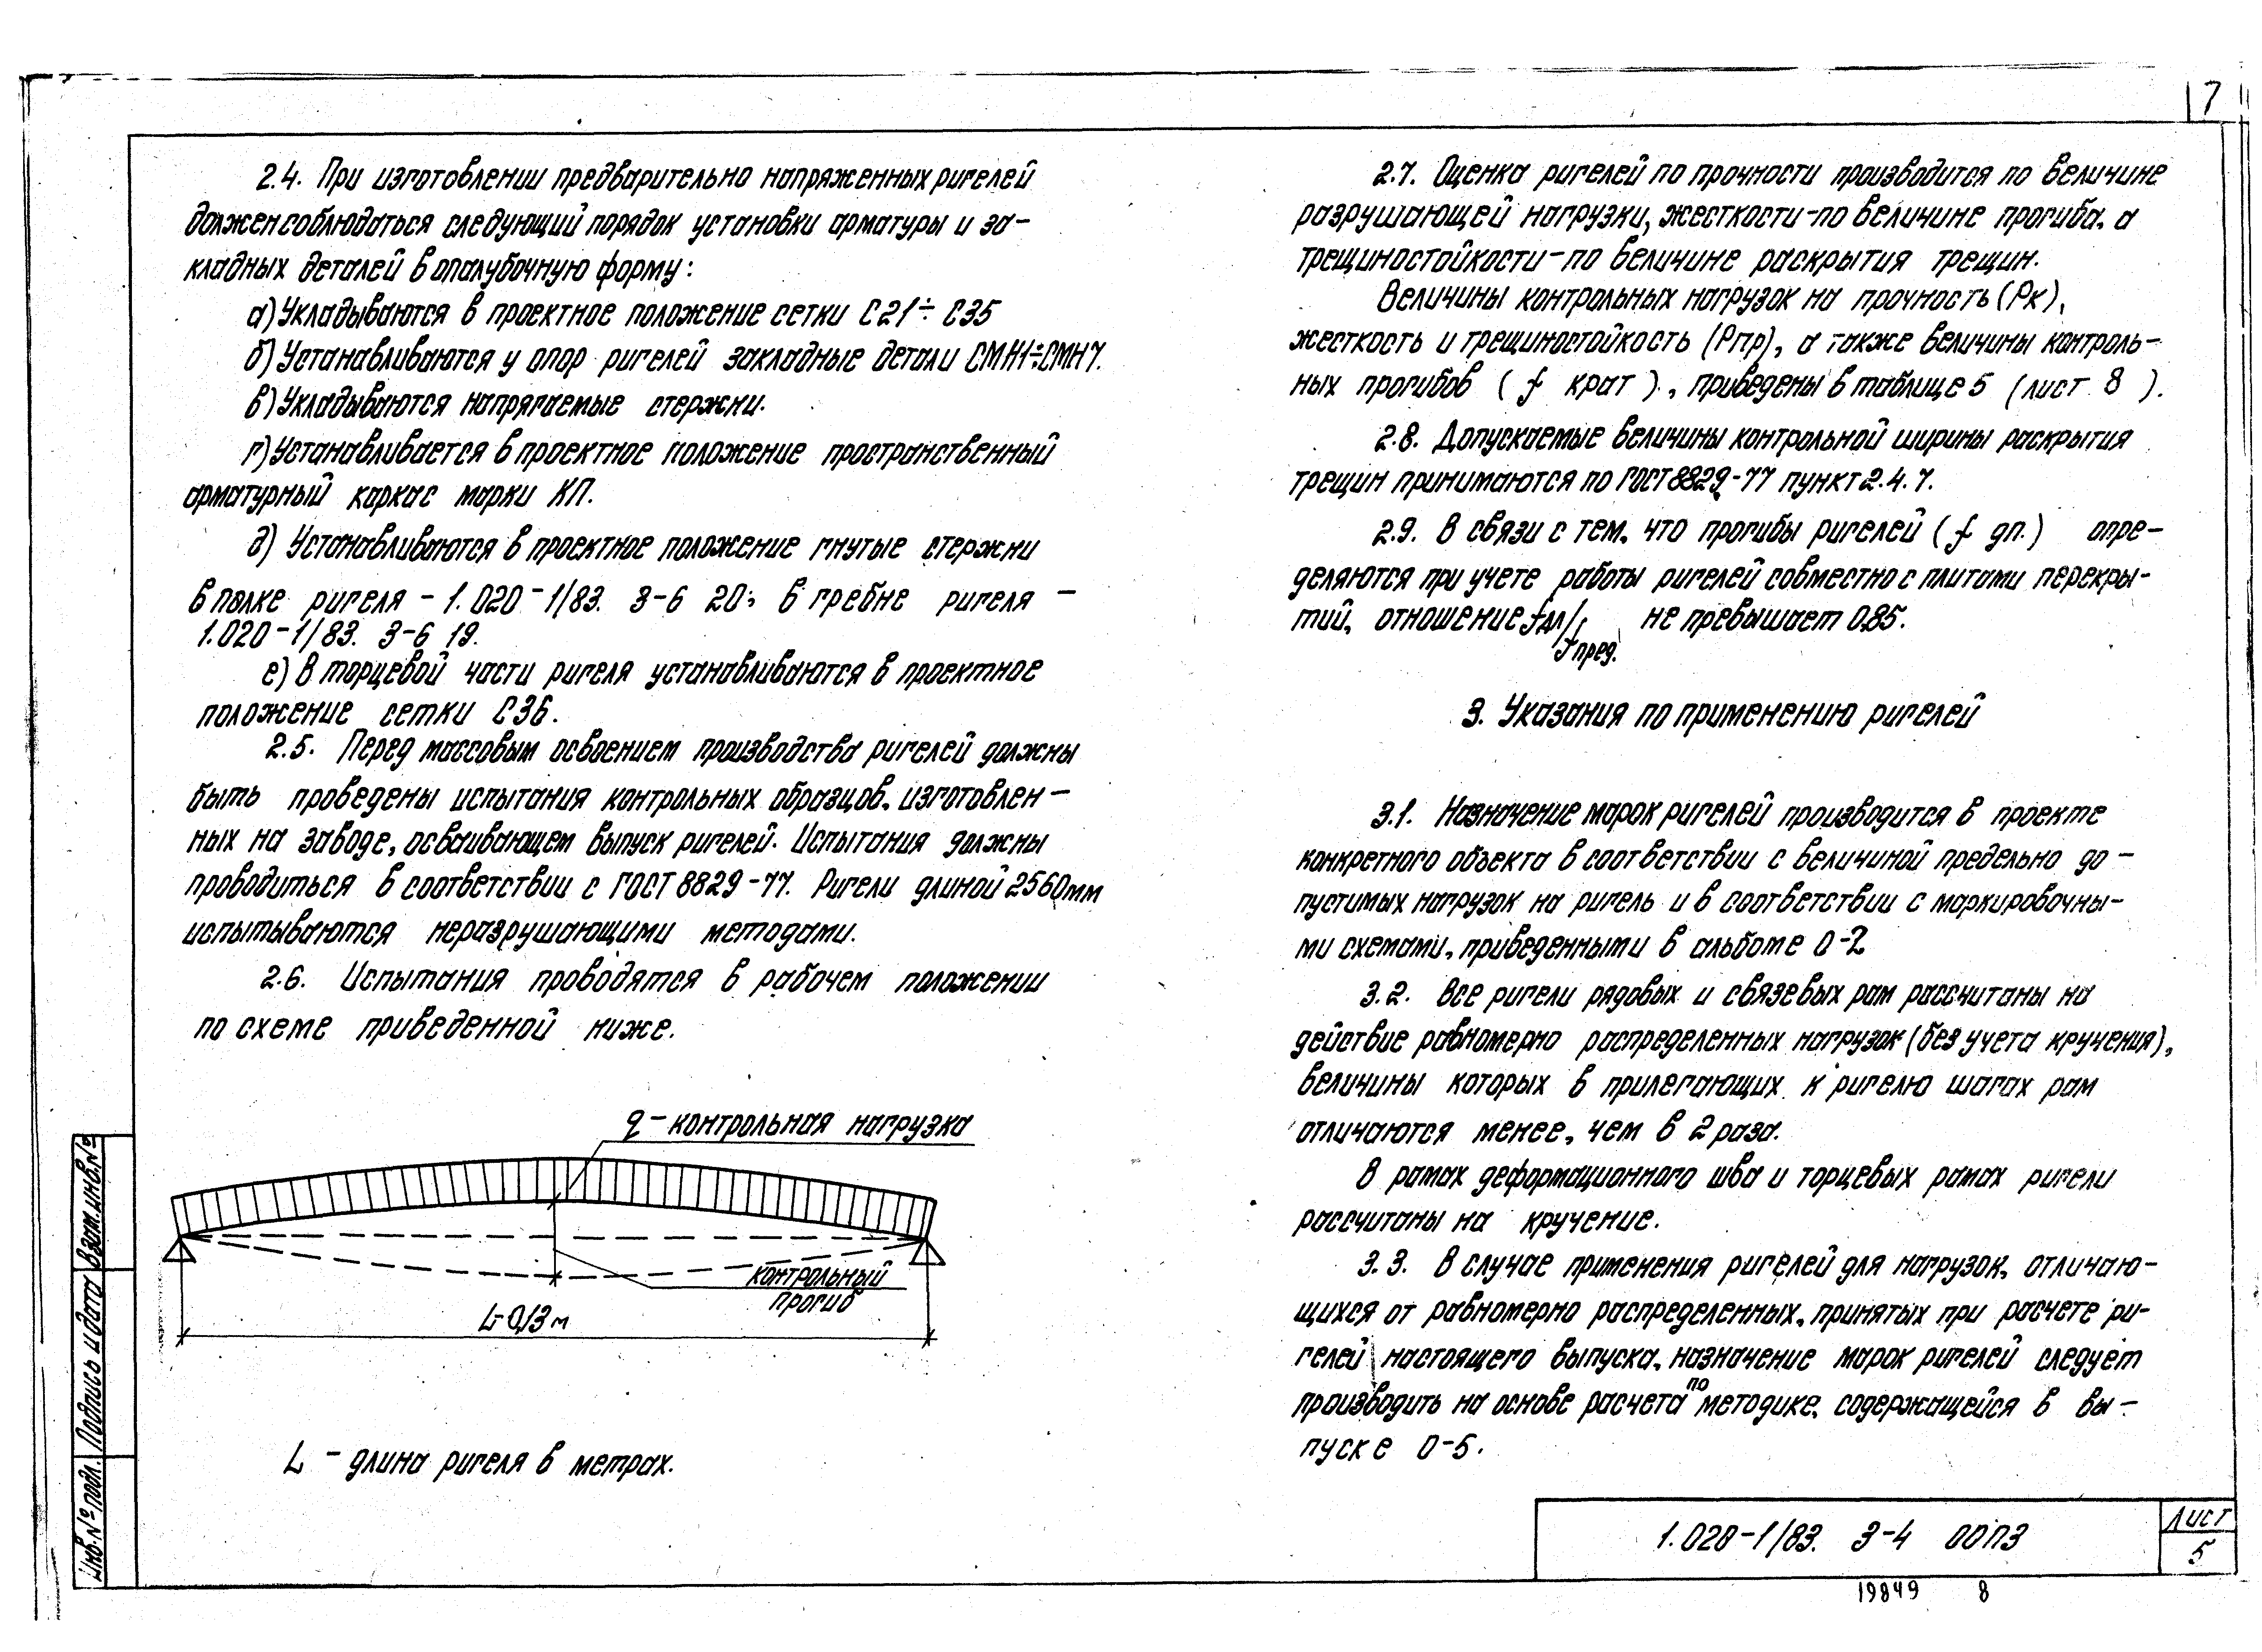 7
2.4. При изготовлении предварительно напряженных ригелей
должен соблюдаться следующий порядок установки арматуры и за-
кладных деталей в опалубочную форму:
а) Укладываются в проектное положение сетки С21÷С35
б) Устанавливаются у опор ригелей закладные детали СМН1÷СМН7.
в) Укладываются напрягаемые стержни.
г) Устанавливается в проектное положение пространственный
арматурный каркас марки КП.
д) Устанавливаются в проектное положение гнутые стержни
в полке ригеля - 1.020-1/83. 3-6 20; в гребне ригеля -
1.020-1/83. 3-6 19.
е) В торцевой части ригеля устанавливаются в проектное
положение сетки С36.
2.5. Перед массовым освоением производства ригелей должны
быть проведены испытания контрольных образцов, изготовлен-
ных на заводе, осваивающем выпуск ригелей. Испытания должны
проводиться в соответствии с ГОСТ 8829-77. Ригели длиной 2560мм
испытываются неразрушающими методами.
2.6. Испытания проводятся в рабочем положении
по схеме приведенной ниже.
q - контрольная нагрузка
контрольный
прогиб
L-0,13м
L - длина ригеля в метрах.
2.7. Оценка ригелей по прочности производится по величине
разрушающей нагрузки, жесткости-по величине прогиба, а
трещиностойкости-по величине раскрытия трещин.
Величины контрольных нагрузок на прочность (Рк),
жесткость и трещиностойкость (Рпр), а также величины контроль-
ных прогибов (f крат), приведены в таблице 5 (лист 8).
2.8. Допускаемые величины контрольной ширины раскрытия
трещин принимаются по ГОСТ 8829-77 пункт 2.4.7.
2.9. В связи с тем, что прогибы ригелей (f дл.) опре-
деляются при учете работы ригелей совместно с плитами перекры-
тий, отношение fдл/fпред. не превышает 0,85.
3. Указания по применению ригелей
3.1. Назначение марок ригелей производится в проекте
конкретного объекта в соответствии с величиной предельно до-
пустимых нагрузок на ригель и в соответствии с маркировочны-
ми схемами, приведенными в альбоме 0-2
3.2. Все ригели рядовых и связевых рам рассчитаны на
действие равномерно распределенных нагрузок (без учета кручения),
величины которых в прилегающих к ригелю шагах рам
отличаются менее, чем в 2 раза.
В рамах деформационного шва и торцевых рамах ригели
рассчитаны на кручение.
3.3. В случае применения ригелей для нагрузок, отличаю-
щихся от равномерно распределенных, принятых при расчете ри-
гелей настоящего выпуска, назначение марок ригелей следует
производить на основе расчета по методике, содержащейся в вы-
пуске 0-5.
Инв.№ подл. Подпись и дата Взам.инв.№
1.020-1/83. 3-4 00ПЗ
Лист
5
19849 8